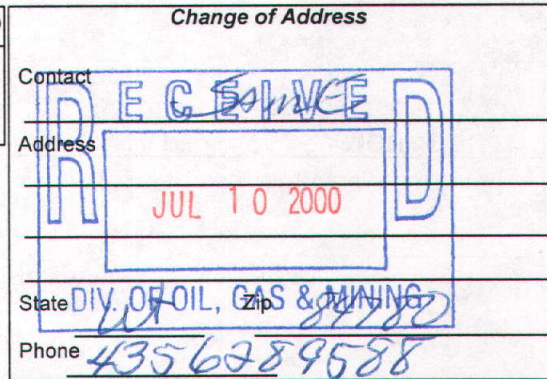 Change of Address
Contact Same
RECEIVED
Address
JUL 10 2000
DIV. OF OIL, GAS & MINING
State UT Zip 84780
Phone 4356289588